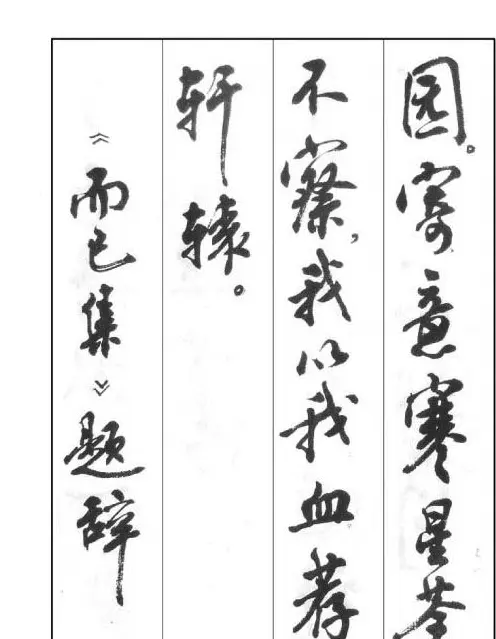 园。寄意寒星荃
不察，我以我血荐
轩辕。
《而已集》题辞